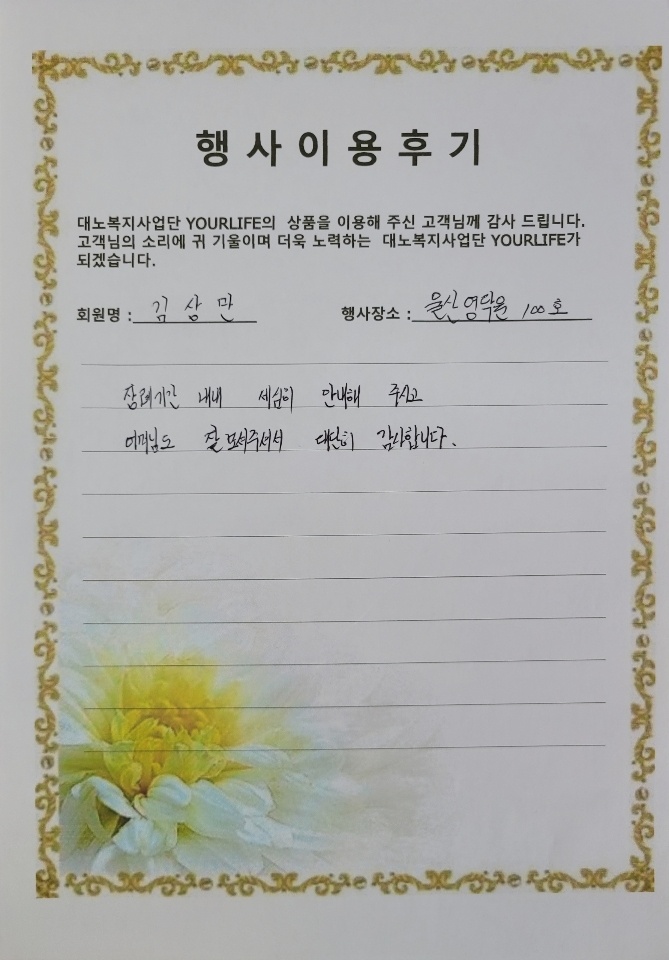 행사이용후기
대노복지사업단 YOURLIFE의 상품을 이용해 주신 고객님께 감사 드립니다.
고객님의 소리에 귀 기울이며 더욱 노력하는 대노복지사업단 YOURLIFE가
되겠습니다.
회원명 : 김상만 행사장소 : 울산영락원 100호
장례기간 내내 세심히 안내해 주시고
어머님도 잘 모셔주셔서 대단히 감사합니다.